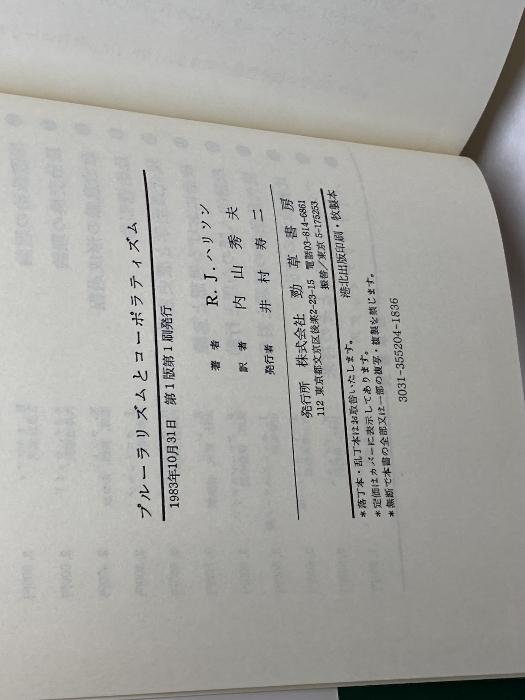 プルーラリズムとコーポラティズム
1983年10月31日 第1版第1刷発行
著者 R.J.ハリソン
訳者 内山秀夫
発行者 井村寿二
発行所 株式会社 勁草書房
112 東京都文京区後楽2-23-15 電話03-814-6861
振替/東京 5-175253
港北出版印刷・牧製本
*落丁本・乱丁本はお取替いたします。
*定価はカバーに表示してあります。
*無断で本書の全部又は一部の複写・複製を禁じます。
3031-355204-1836